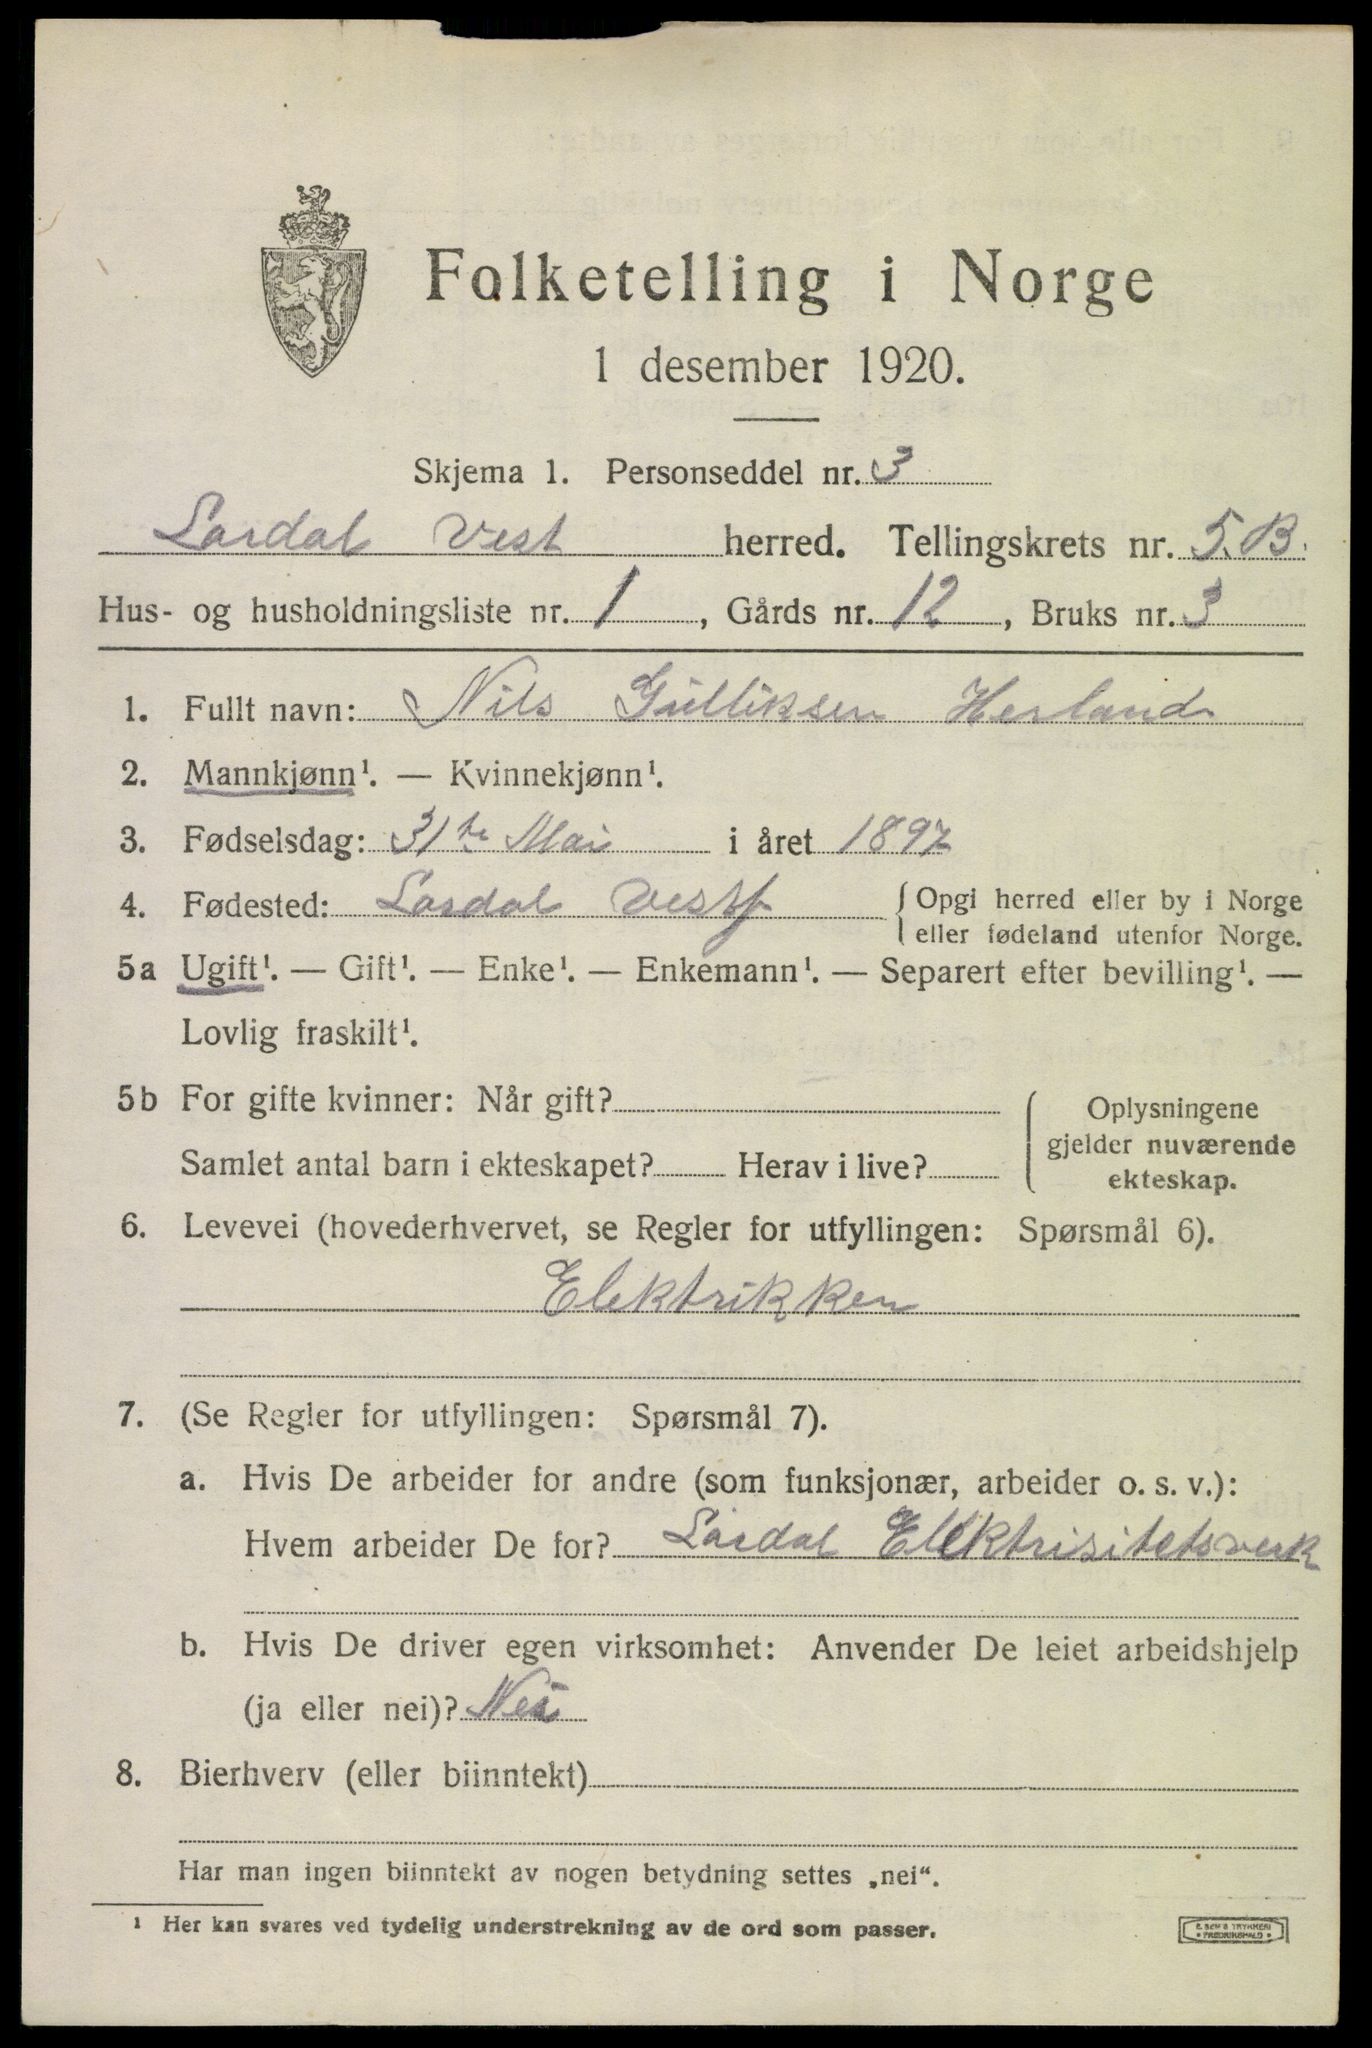 Folketelling i Norge
1 desember 1920.
Skjema 1. Personseddel nr. 3
Lardal Vest herred. Tellingskrets nr. 5.B.
Hus- og husholdningsliste nr. 1, Gårds nr. 12, Bruks nr. 3
1. Fullt navn: Nils Gulliksen Herland
2. Mannkjønn¹. — Kvinnekjønn¹.
3. Fødselsdag: 31te Mai i året 1897
4. Fødested: Lardal Vestf { Opgi herred eller by i Norge
eller fødeland utenfor Norge.
5a Ugift¹. — Gift¹. — Enke¹. — Enkemann¹. — Separert efter bevilling¹. —
Lovlig fraskilt¹.
5b For gifte kvinner: Når gift?
Samlet antal barn i ekteskapet? Herav i live?
{ Oplysningene
gjelder nuværende
ekteskap.
6. Levevei (hovederhvervet, se Regler for utfyllingen: Spørsmål 6).
Elektrikken
7. (Se Regler for utfyllingen: Spørsmål 7).
a. Hvis De arbeider for andre (som funksjonær, arbeider o. s. v.):
Hvem arbeider De for? Lardal Elektrisitetsverk
b. Hvis De driver egen virksomhet: Anvender De leiet arbeidshjelp
(ja eller nei)? Nei
8. Bierhverv (eller biinntekt)
Har man ingen biinntekt av nogen betydning settes „nei“.
¹ Her kan svares ved tydelig understrekning av de ord som passer.
E. SEM'S TRYKKERI
• FREDRIKSHALD •